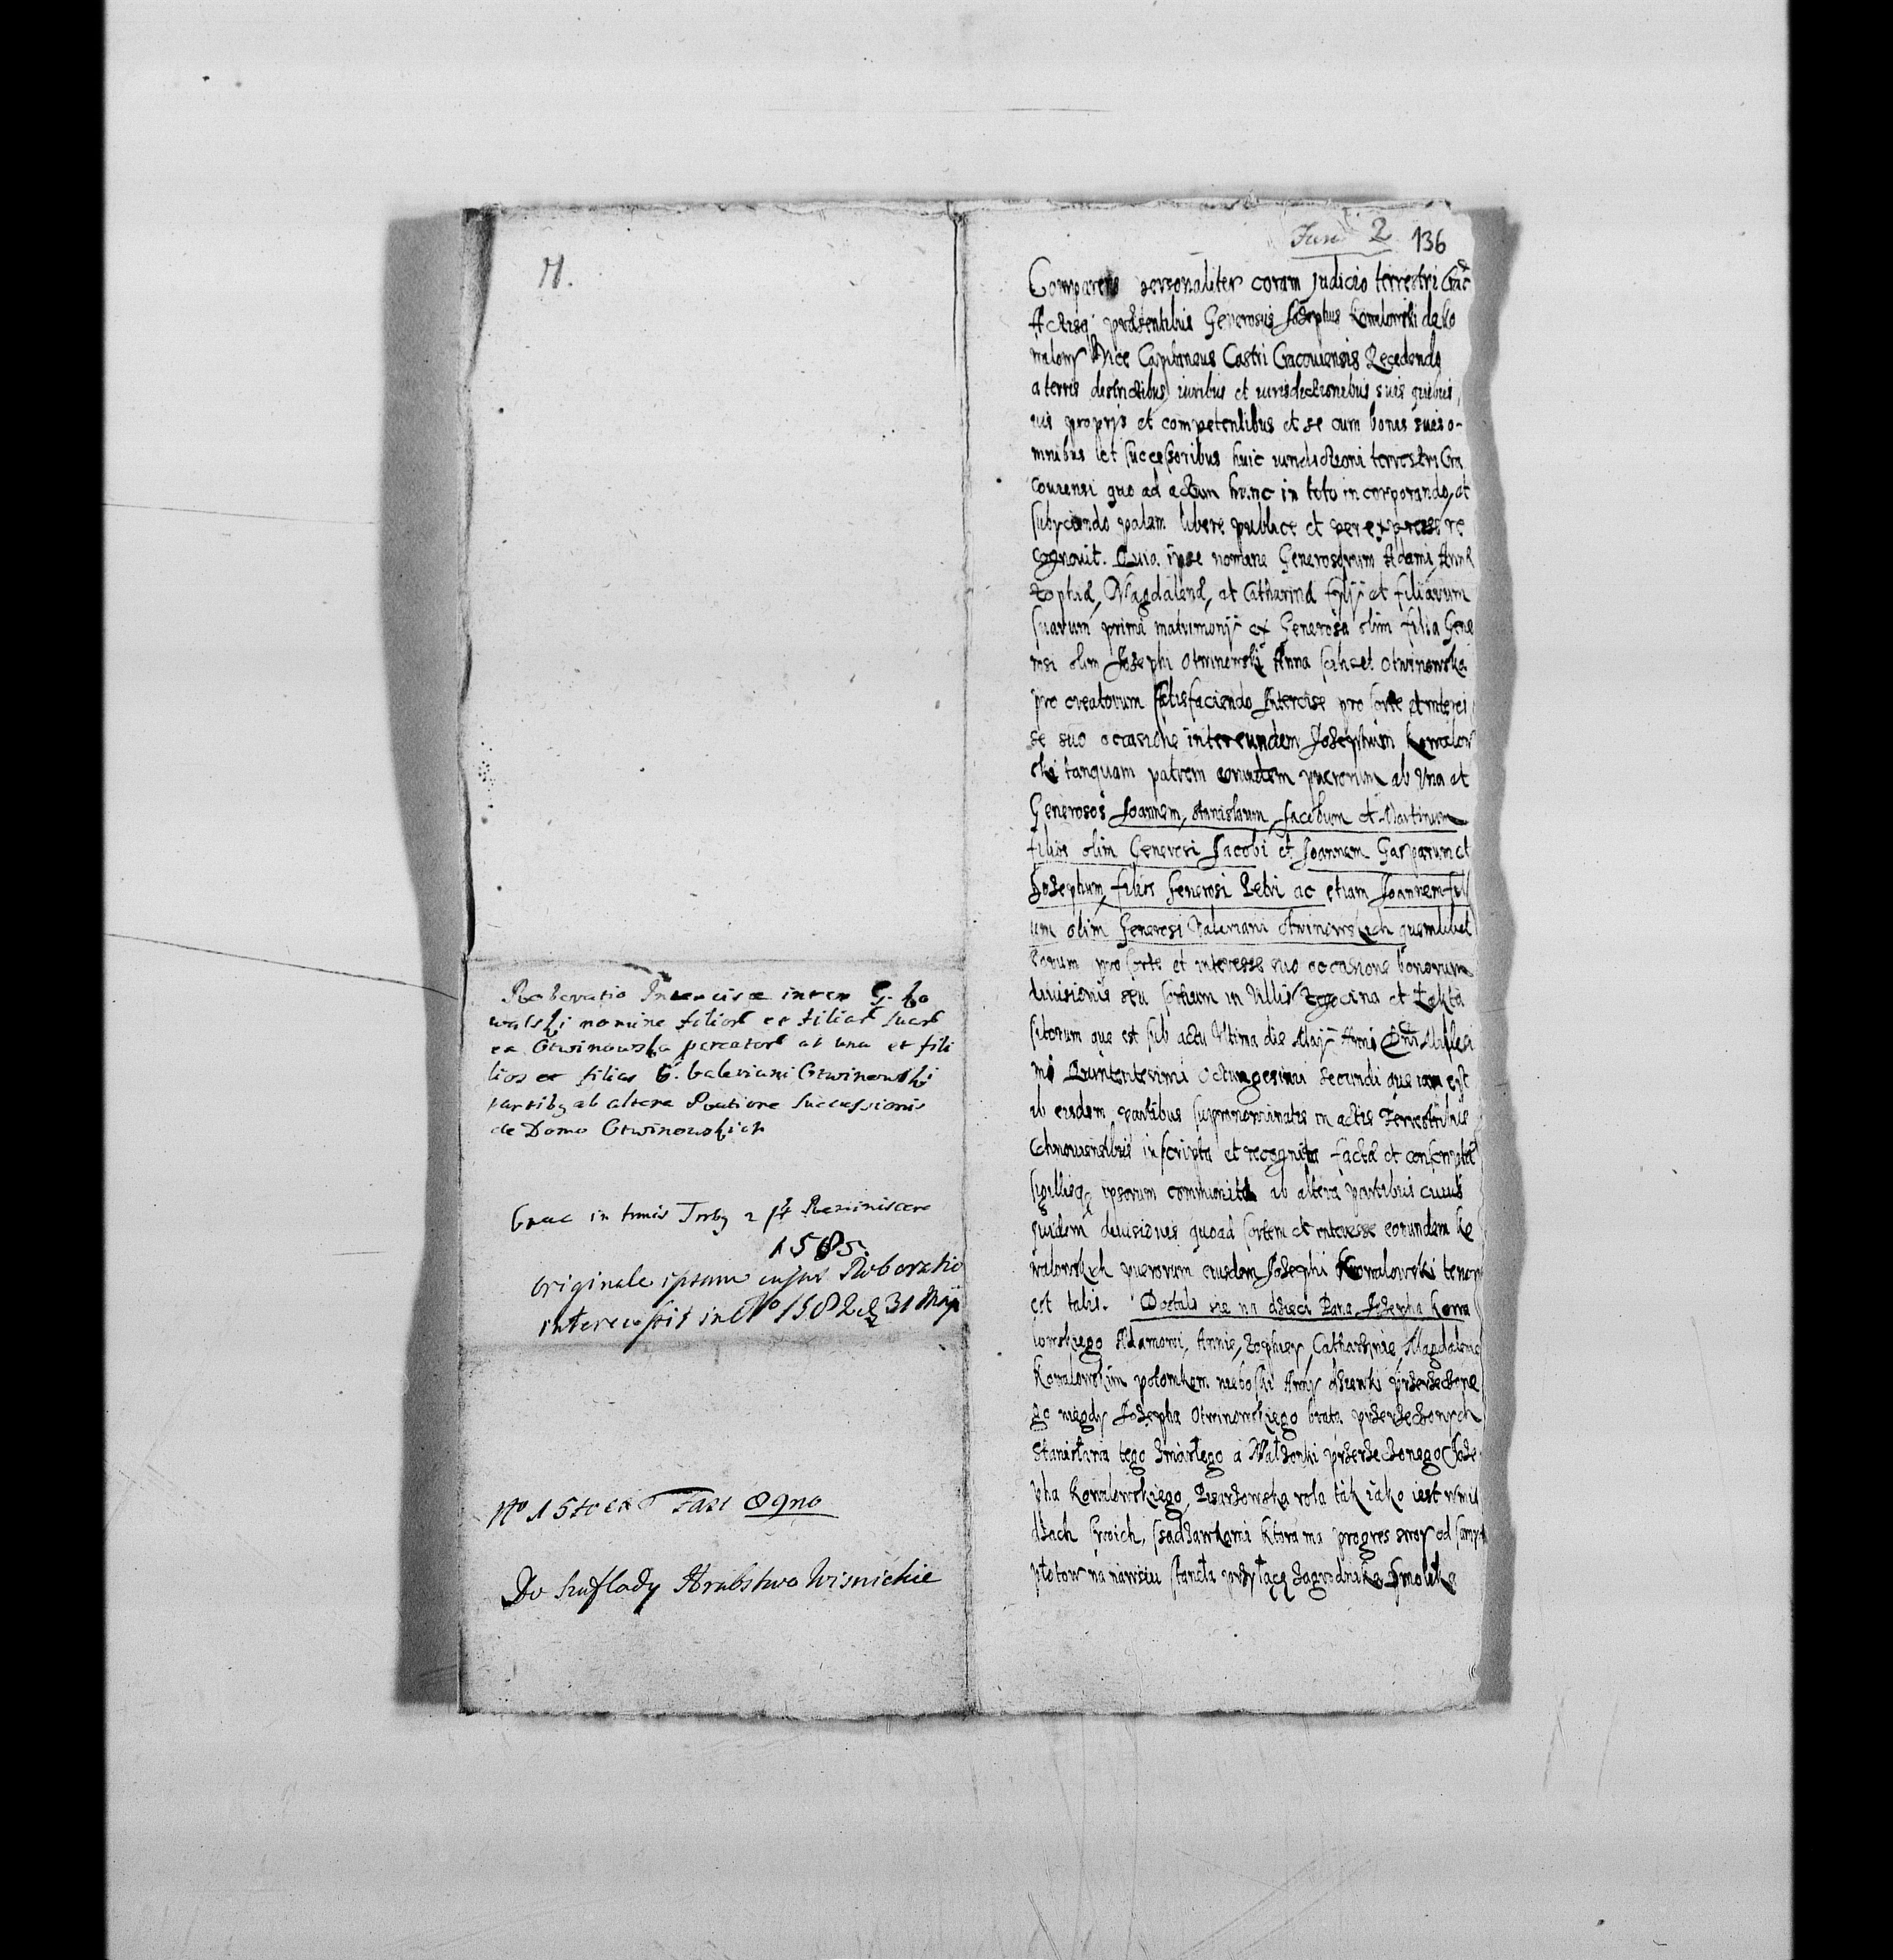 H.
Roboratio Intercisæ inter G. Ko
walski nomine filior et filiar suar
ex Otwinowska pcreator ab una et fili
lios et filias G. Valeriani Otwinowski
partiby ab altera Ratione Successionis
de Domo Otwinowskich
Crac in tmis Trrby 2 pt Reminiscere
1585.
originale ipsum cujus Roboratio
intercessit in Ao 1582 d 31 Maji
No 15 Fasc 89no
Do Szuflady Hrabstwo Wisnickie
2 136
Comparens personaliter coram Judicio terrestri Crac
Actisq præsentibus Generosus Josephus Kowalowski de Ko
walowy Vice Capitaneus Castri Cracouiensis Recedendo
a terris destrictibus iuribus et iurisdictionibus suis quibus
uis proprys et competentibus et se cum bonis suis o-
mnibus et successoribus huic iurisdictioni terrestri Cra
couiensi quo ad actum hunc in toto incorporando, et
subyciendo palam libere publice et per expressum re
cognouit. Quia ipse nomine Generosorum Adami, Annæ
Zophiæ, Magdalenæ, et Catharinæ fylij et filiarum
suarum primi matrimonij ex Generosa olim filia Gene
rosi olim Josephi Otwinowski Anna scilicet Otwinowska
pro creatorum satisfaciendo Intercise pro sorte et interes
se suo occasione inter eundem Josephum Kowalow
ski tanquam patrem eorundem puerorum ab Vna et
Generosos Joannem, Stanislaum, Jacobum et Martinum
filios olim Generosi Jacobi et Joannem Gasparum et
Josephum, filios Generosi Petri ac etiam Joannem fili
um olim Generosi Valeriani Otwinowskich quemlibet
eorum pro sorte et interesse suo occasione bonorum
diuisionis seu sortium in Villis Zegocina et Łąkta
sitorum que est sub actu Vltima die Maij Anno Dni Millesi
mo Quintentesimi octuagesimi secundi que iam est
ab eisdem partibus supranominatis in actis Terrestribus
Cchnouiensibus inscripta et recognita facta et conscripta
sigillisq ipsorum communita ab altera partibus cuius
quidem diuisionis quoad sortem et interesse eorundem Ko
walowskich puerorum eiusdem Josephi Kowalowski tenor
est talis. Dostało sie na dzieci Pana Jozepha Kowa
lowskiego Adamowi, Annie, Zophiey, Catharzinie, Magdalenie
Kowalowskim potomkom nieboski Anny dziewki przerzeczone
go niegdy Jozepha Otwinowskiego brata przerzeczonych
Stanisława tego zmarłego a Małzonki przerzeczonego Joze
pha Kowalowskiego, Pisarzowska rola tak iako iest w mie
dzach swoich, s sadzawkami ktora ma progres swoy od samych
płotow na nawsiu Smolika